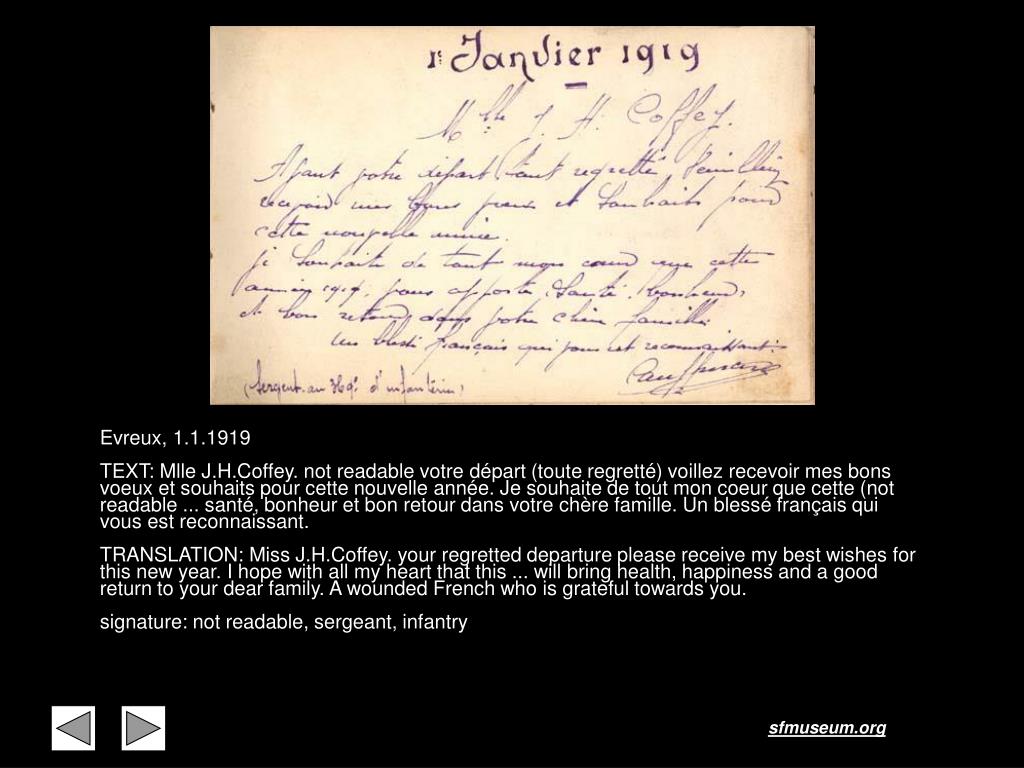 1er Janvier 1919
Mlle J. H. Coffey.
Avant votre départ tant regretté Veuillez
recevoir mes bons vœux et souhaits pour
cette nouvelle année.
Je souhaite de tout mon cœur que cette
année 1919, vous apporte, Santé, bonheur,
et bon retour dans votre chère famille.
Un blessé français qui vous est reconnaissant.
(Sergent au 369e d'infanterie)
Evreux, 1.1.1919
TEXT: Mlle J.H.Coffey. not readable votre départ (toute regretté) voillez recevoir mes bons
voeux et souhaits pour cette nouvelle année. Je souhaite de tout mon coeur que cette (not
readable ... santé, bonheur et bon retour dans votre chère famille. Un blessé français qui
vous est reconnaissant.
TRANSLATION: Miss J.H.Coffey, your regretted departure please receive my best wishes for
this new year. I hope with all my heart that this ... will bring health, happiness and a good
return to your dear family. A wounded French who is grateful towards you.
signature: not readable, sergeant, infantry
sfmuseum.org